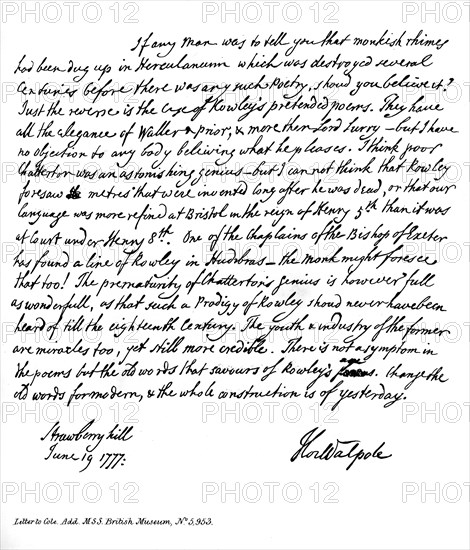 If any Man was to tell you that monkish rhimes
had been dug up in Herculaneum which was destroyed several
Centuries before there was any such Poetry, should you believe it?
Just the reverse is the Case of Rowley's pretended poems. They have
all the elegance of Waller & prior, & more then Lord Surry – but I have
no objection to any body believing what he pleases. I think poor
Chatterton was an astonishing genius – but I can not think that Rowley
foresaw metres that were invented long after he was dead, or that our
Language was more refined at Bristol in the reign of Henry 5th than it was
at Court under Henry 8th. One of the Chaplains of the Bishop of Exeter
has found a line of Rowley in Hudibras – the monk might foresee
that too! The prematurity of Chatterton's genius is however full
as wonderfull, as that such a Prodigy of Rowley should never have been
heard of till the eighteenth Century. The youth & industry of the former
are miracles too, yet still more credible. There is not a symptom in
the poems but the old words that savours of Rowley's age. Change the
old words for modern, & the whole construction is of yesterday.
Strawberry hill
June 19 1777.
Hor Walpole
Letter to Cole. Add. MSS. British Museum, No 5,953.
PHOTO12